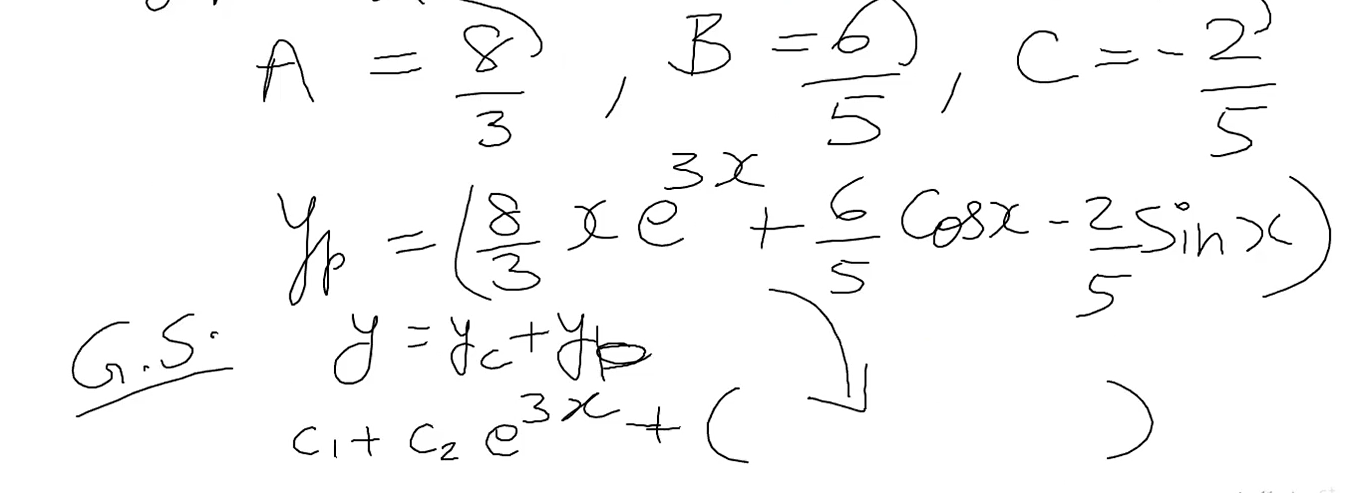 A = 8/3 , B = 6/5 , C = -2/5
y_p = (8/3 x e^{3x} + 6/5 Cosx - 2/5 Sinx)
G.S. y = y_c + y_p
c_1 + c_2 e^{3x} + ( )